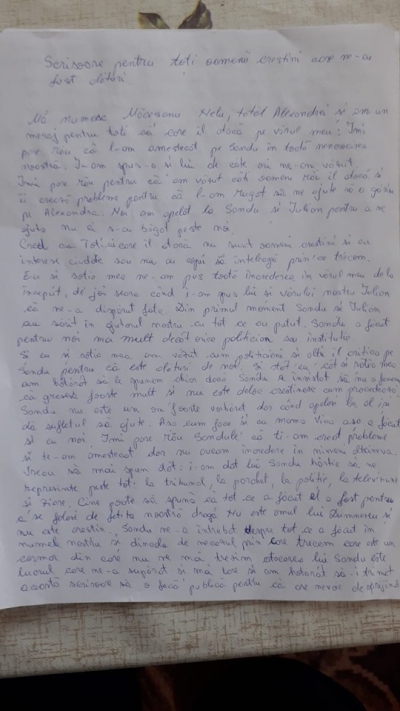 Scrisoare pentru toți oamenii creștini care ne-au
fost alături
Mă numesc Măceșanu Nelu, tatăl Alexandrei și am un
mesaj pentru toți cei care îl atacă pe vărul meu; Îmi
pare rău că l-am amestecat pe Sandu în toată nenorocirea
noastră. I-am spus-o și lui de câte ori ne-am văzut.
Îmi pare rău pentru că am văzut câți oameni răi îl atacă și
îi creează probleme pentru că l-am rugat să ne ajute să o găsim
pe Alexandra. Noi am apelat la Sandu și Iulian pentru a ne
ajuta nu ei s-au băgat peste noi.
Cred că Toți cei care îl atacă nu sunt oameni creștini și au
interese ciudate sau nu au copii să înțeleagă prin ce trecem.
Eu și soția mea ne-am pus toată încrederea în vărul meu de la
început, de joi seara când i-am spus lui și vărului nostru Iulian
că ne-a dispărut fata. Din primul moment Sandu și Iulian
au sărit în ajutorul nostru cu tot ce au putut. Sandu a făcut
pentru noi mai mult decât orice politician sau instituție
Și eu și soția mea am văzut cum politicieni și alții îl critică pe
Sandu pentru că este alături de noi. Și tot eu cât și soția mea
am hotărât să le spunem chiar dacă Sandu a insistat să nu o facem
că greșesc foarte mult și nu este deloc creștinește cum procedează
Sandu nu este un om foarte vorbăreț dar când apelezi la el își
dă sufletul să ajute. Așa cum face și cu mama lui așa a făcut
și cu noi. Îmi pare rău Sandule că ți-am creat probleme
și te-am amestecat dar nu aveam încredere în nimeni altcineva.
Vreau să mai spun atât: i-am dat lui Sandu hârtie să ne
reprezinte peste tot: la tribunal, la parchet, la poliție, la televiziune
și ziare. Cine poate să spună că tot ce a făcut el a fost pentru
a se folosi de fetița noastră dragă nu este omul lui Dumnezeu și
nu este creștin. Sandu ne-a întrebat despre tot ce a făcut în
numele nostru și dincolo de necazul prin care trecem care e un
coșmar din care nu ne mai trezim atacarea lui Sandu este
lucrul care ne-a supărat și mai tare și am hotărât să-i trimit
această scrisoare să o facă publică pentru că are nevoie de sprijinul